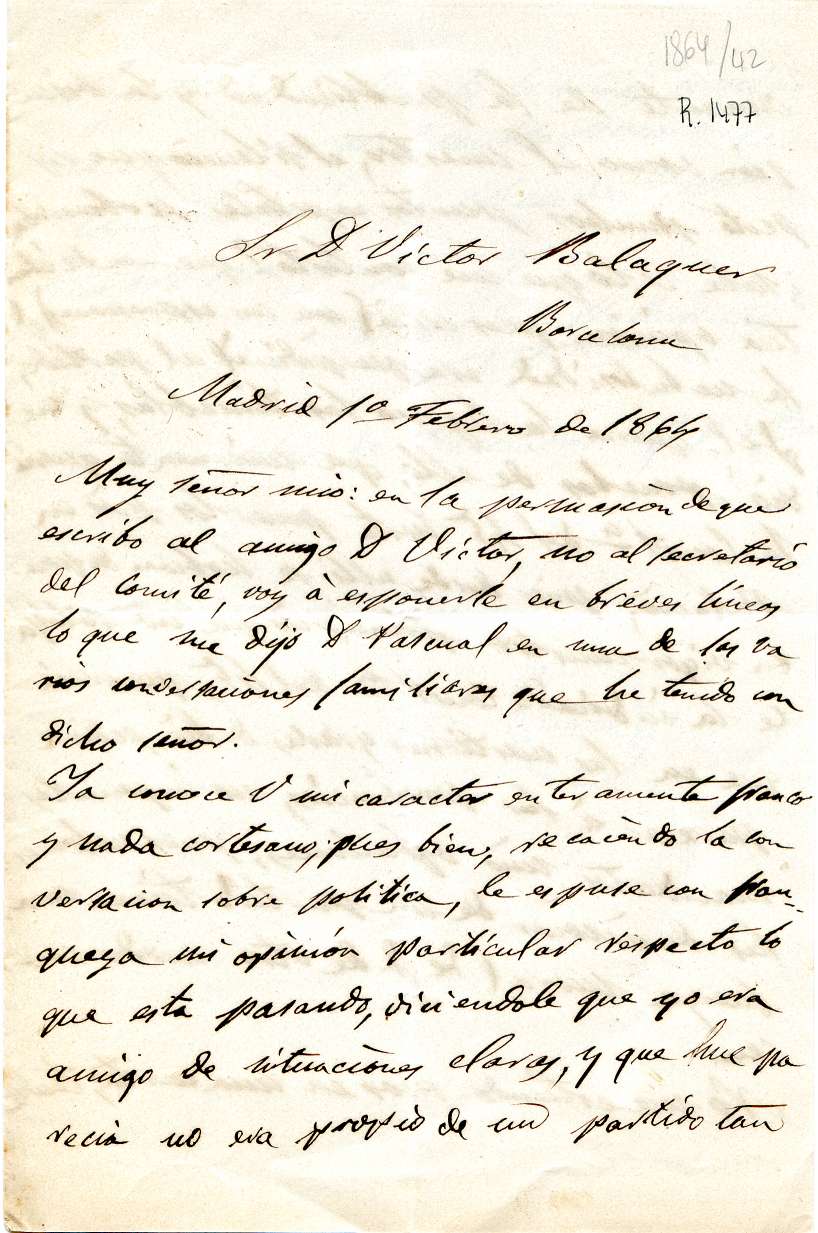 1864/42
R. 1477
Sr D Victor Balaguer
Barcelona
Madrid 1º Febrero de 1864
Muy señor mio: en la persuasión de que
escribo al amigo D Victor, no al secretario
del Comité, voy à esponerle en bréves líneas
lo que me dijo D Pascual en una de las va
rias conversaciones familiares que he tenido con
dicho señor.
Ya conoce V mi caracter enteramente franco
y nada cortesano; pues bien, recaéndo la con
versacion sobre politica, le espuse con fran-
queza mi opinión particular respecto lo
que esta pasando, diciendole que yo era
amigo de situaciones claras, y que me pa
recia no era propio de un partido tan